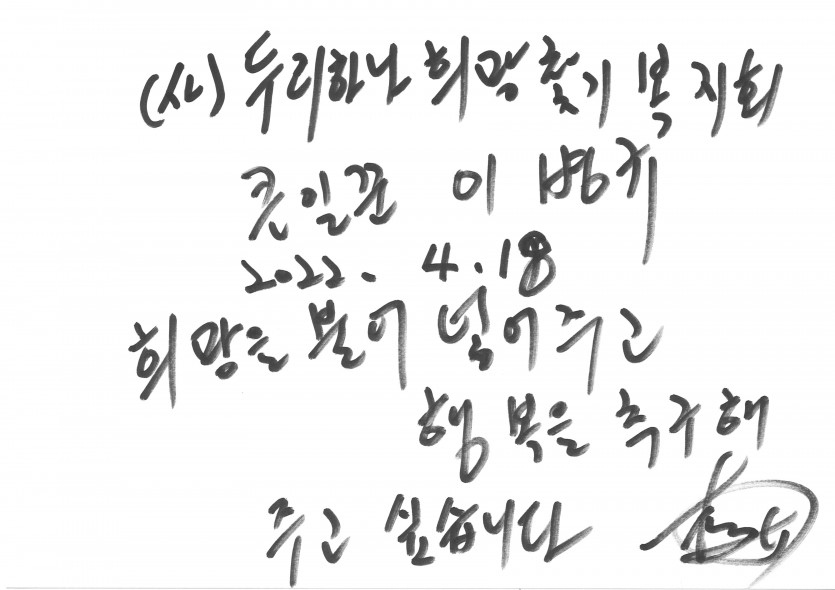 (사) 두리하나 희망찾기 복지회
큰일꾼 이 병키
2022. 4. 18
희망을 불어 넣어 주고
행복을 추구해
주고 싶습니다